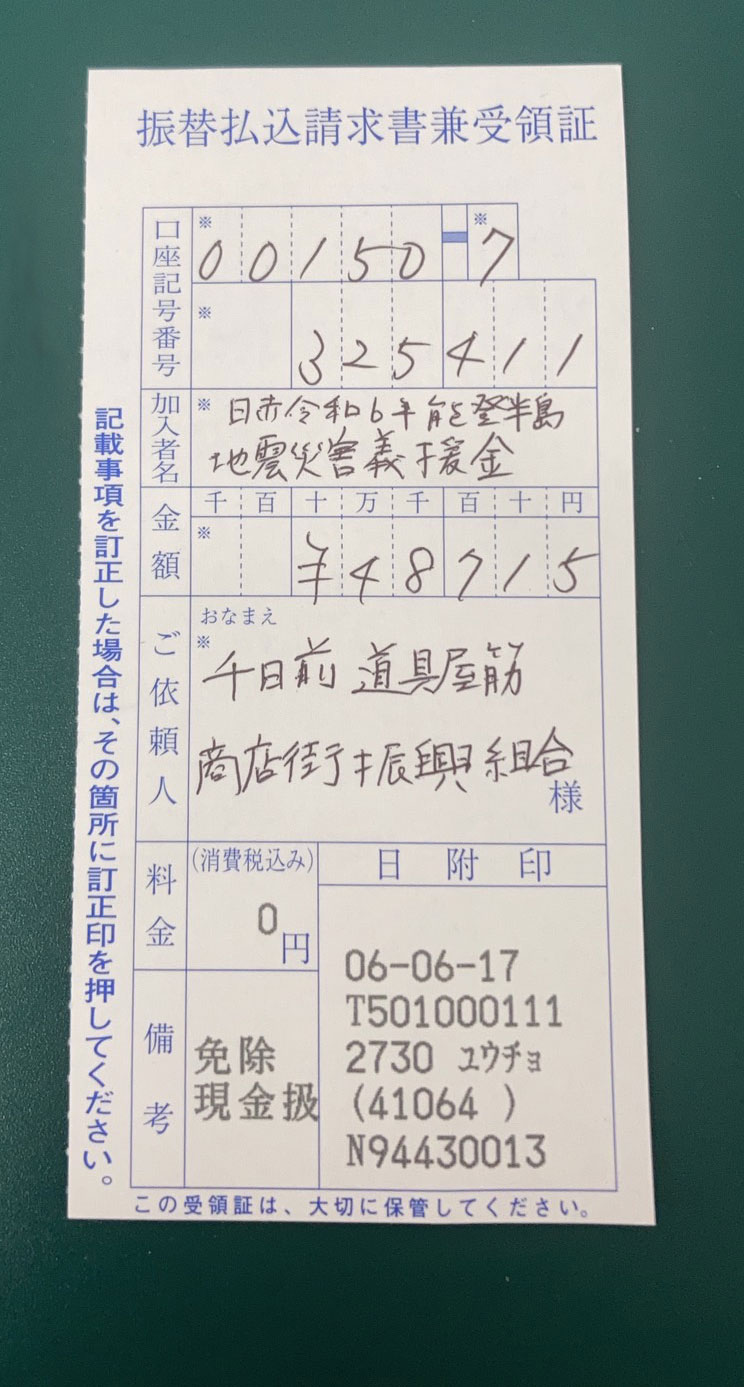 振替払込請求書兼受領証
口座記号番号
※ 00150-※ 7
※ 325411
加入者名
※ 日赤令和6年能登半島
地震災害義援金
金額
千百十万千百十円
※ ¥48715
ご依頼人
おなまえ
※ 千日前 道具屋筋
商店街振興組合
様
料金
(消費税込み)
0円
備考
免除
現金扱
日附印
06-06-17
T501000111
2730 ユウチョ
(41064 )
N94430013
記載事項を訂正した場合は、その箇所に訂正印を押してください。
この受領証は、大切に保管してください。